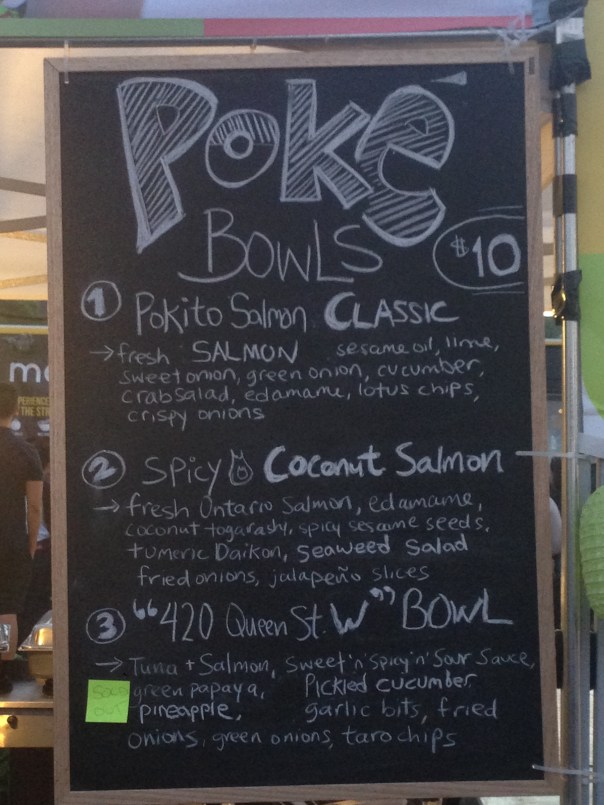 POKE
BOWLS
$10
1 Pokito Salmon CLASSIC
→ fresh SALMON sesame oil, lime,
sweet onion, green onion, cucumber,
crab salad, edamame, lotus chips,
crispy onions
2 SPICY Coconut Salmon
→ fresh Ontario Salmon, edamame,
coconut togarashi, spicy sesame seeds,
tumeric Daikon, seaweed salad
fried onions, jalapeño slices
3 "420 Queen St. W" BOWL
→ Tuna + Salmon, sweet'n'spicy'n'sour sauce,
green papaya, Pickled cucumber
pineapple, garlic bits, fried
onions, green onions, taro chips
SOLD
OUT
THE STR